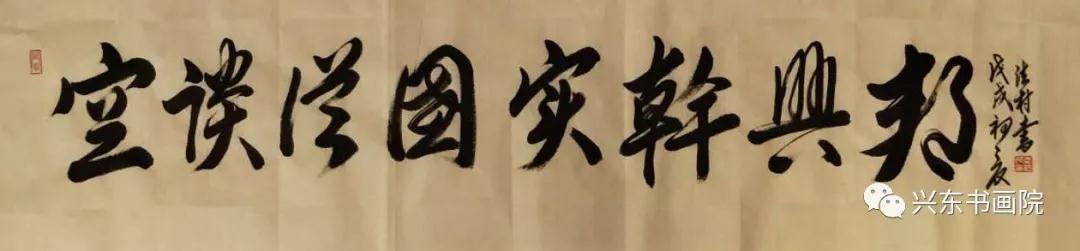 空谈误國实幹興邦
戊戌初夏
法村書
兴东书画院